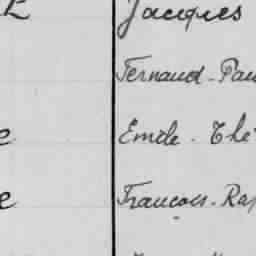 Jacques
Fernand-Pau
e Emile-Thé
e François-Ra